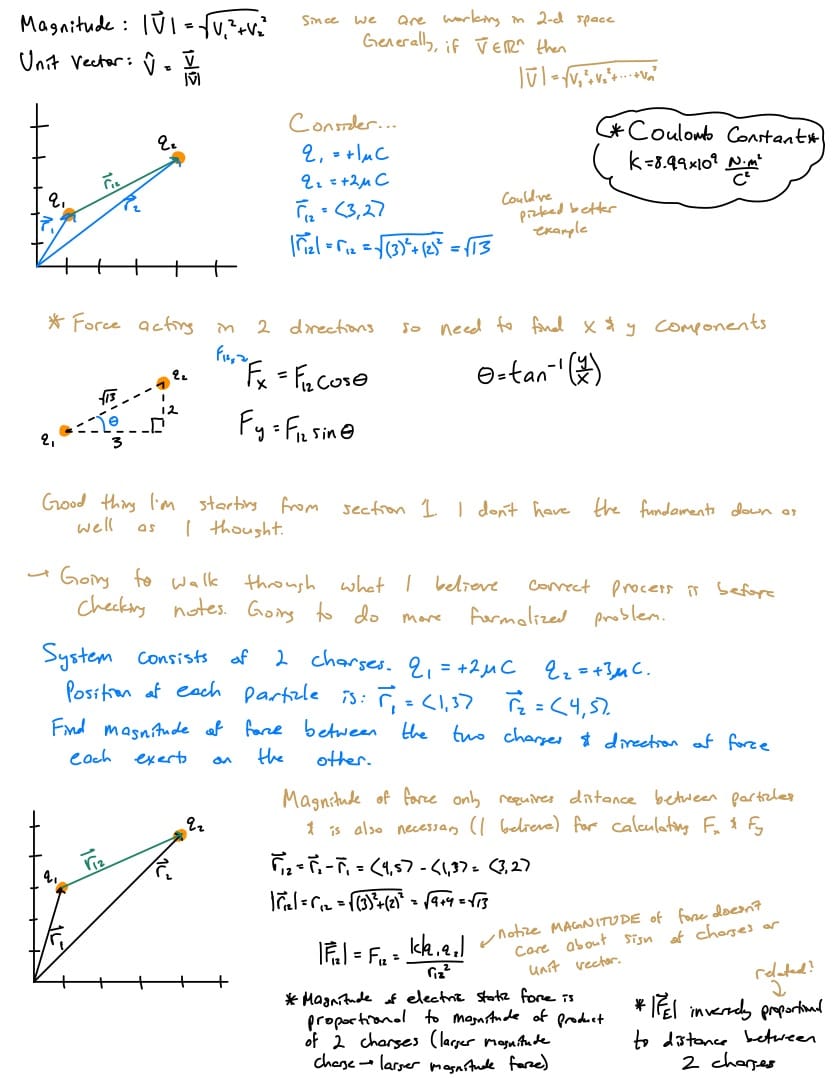 Magnitude: |V⃗| = √V₁²+V₂²
Since we are working in 2-d space
Generally, if V⃗ ∈ ℝⁿ then
Unit Vector: V̂ = V⃗/|V⃗|
|V⃗| = √V₁²+V₂²+···+Vₙ²
Consider...
q₁ = +1μC
q₂ = +2μC
r⃗₁₂ = <3,2>
|r⃗₁₂| = r₁₂ = √(3)²+(2)² = √13
Could've
picked better
example
* Coulomb Constant *
k = 8.99×10⁹ N·m²/C²
q₂
r⃗₁₂
q₁
r⃗₁
r⃗₂
* Force acting in 2 directions so need to find x & y components
Fx = F₁₂ cosθ
θ = tan⁻¹(y/x)
Fy = F₁₂ sinθ
q₂
√13
2
θ
q₁
3
Good thing I'm starting from section 1 I don't have the fundaments down as
well as I thought.
→ Going to walk through what I believe correct process is before
checking notes. Going to do more formalized problem.
System consists of 2 charges. q₁ = +2μC q₂ = +3μC.
Position of each particle is: r⃗₁ = <1,3> r⃗₂ = <4,5>.
Find magnitude of force between the two charges & direction of force
each exerts on the other.
q₂
r⃗₁₂
q₁
r⃗₂
r⃗₁
Magnitude of force only requires distance between particles
& is also necessary (I believe) for calculating Fx & Fy
r⃗₁₂ = r⃗₂ - r⃗₁ = <4,5> - <1,3> = <3,2>
|r⃗₁₂| = r₁₂ = √(3)²+(2)² = √9+4 = √13
|F⃗₁₂| = F₁₂ = k|q₁q₂|/r₁₂²
Notice MAGNITUDE of force doesn't
care about sign of charges or
unit vector.
* Magnitude of electric static force is
proportional to magnitude of product
of 2 charges (larger magnitude
charge → larger magnitude force)
related?
* |F⃗E| inversely proportional
to distance between
2 charges